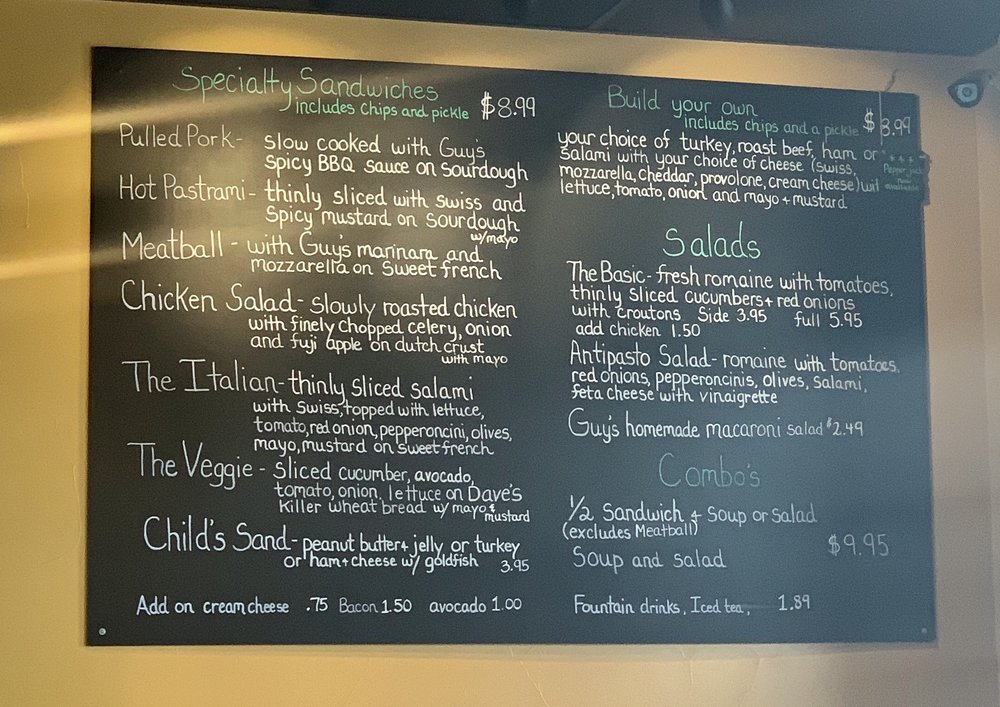 Specialty Sandwiches
includes chips and pickle $8.99
Pulled Pork- slow cooked with Guy's
spicy BBQ sauce on sourdough
Hot Pastrami- thinly sliced with swiss and
spicy mustard on sourdough
w/mayo
Meatball - with Guy's marinara and
mozzarella on sweet french
Chicken Salad- slowly roasted chicken
with finely chopped celery, onion
and fuji apple on dutch crust
with mayo
The Italian- thinly sliced salami
with swiss, topped with lettuce,
tomato, red onion, pepperoncini, olives,
mayo, mustard on sweet french
The Veggie - sliced cucumber, avocado,
tomato, onion, lettuce on Dave's
killer wheat bread w/ mayo +
mustard
Child's Sand- peanut butter + jelly or turkey
or ham + cheese w/ goldfish 3.95
Add on cream cheese .75 Bacon 1.50 avocado 1.00
Build your own
includes chips and a pickle $8.99
your choice of turkey, roast beef, ham or
salami with your choice of cheese (swiss,
mozzarella, cheddar, provolone, cream cheese) wit
lettuce, tomato, onion and mayo + mustard
Pepper jack
now
available
Salads
The Basic- fresh romaine with tomatoes,
thinly sliced cucumbers + red onions
with croutons Side 3.95 full 5.95
add chicken 1.50
Antipasto Salad- romaine with tomatoes,
red onions, pepperoncinis, olives, salami,
feta cheese with vinaigrette
Guy's homemade macaroni salad $2.49
Combo's
1/2 Sandwich + Soup or Salad
(excludes Meatball)
$9.95
Soup and salad
Fountain drinks, Iced tea, 1.89